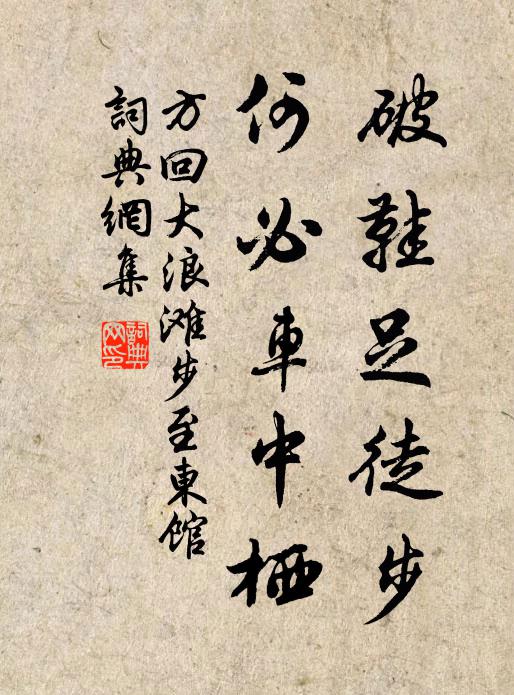 破鞋足徒步
何必車中栖
方回大浪滩步至東館
詞典網集
詞典网印